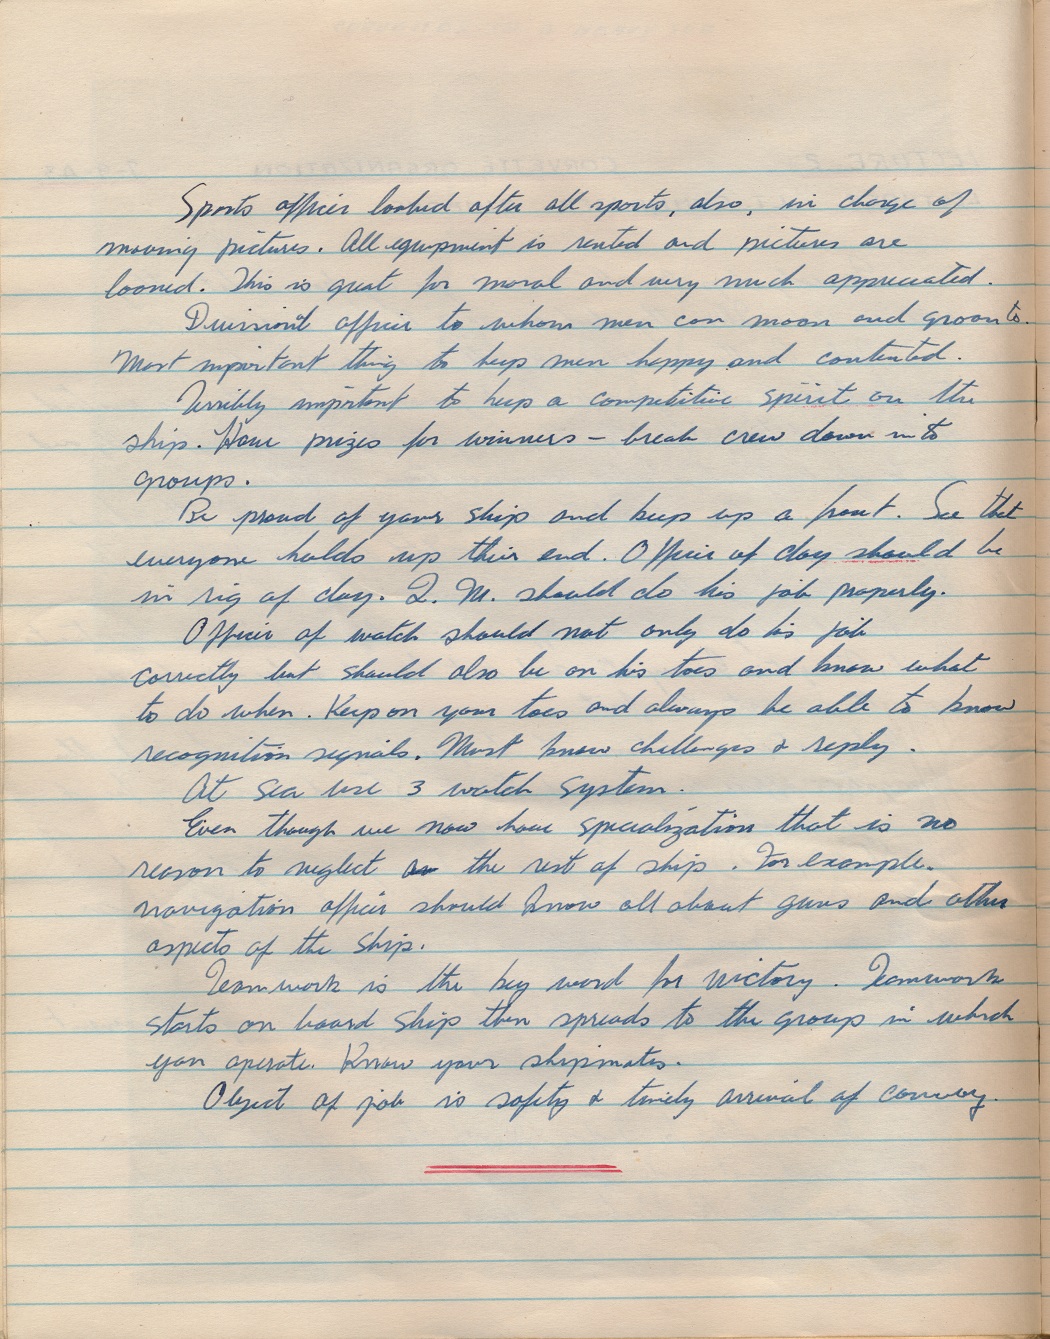 Sports officer looked after all sports, also, in charge of
moving pictures. All equipment is rented and pictures are
loaned. This is great for moral and very much appreciated.
Divisional officer to whom men can moan and groan to.
Most important thing to keep men happy and contented.
Terribly important to keep a competitive spirit on the
ship. Have prizes for winners – break crew down into
groups.
Be proud of your ship and keep up a front. See that
everyone holds up their end. Officer of day should be
in rig of day. Q. M. should do his job properly.
Officer of watch should not only do his job
correctly but should also be on his toes and know what
to do when. Keep on your toes and always be able to know
recognition signals. Must know challenges & reply.
At sea use 3 watch system.
Even though we now have specialization that is no
reason to neglect the rest of ship. For example.
navigation officer should know all about guns and other
aspects of the ship.
Teamwork is the key word for victory. Teamwork
starts on board ship then spreads to the group in which
you operate. Know your shipmates.
Object of job is safety & timely arrival of convoy.